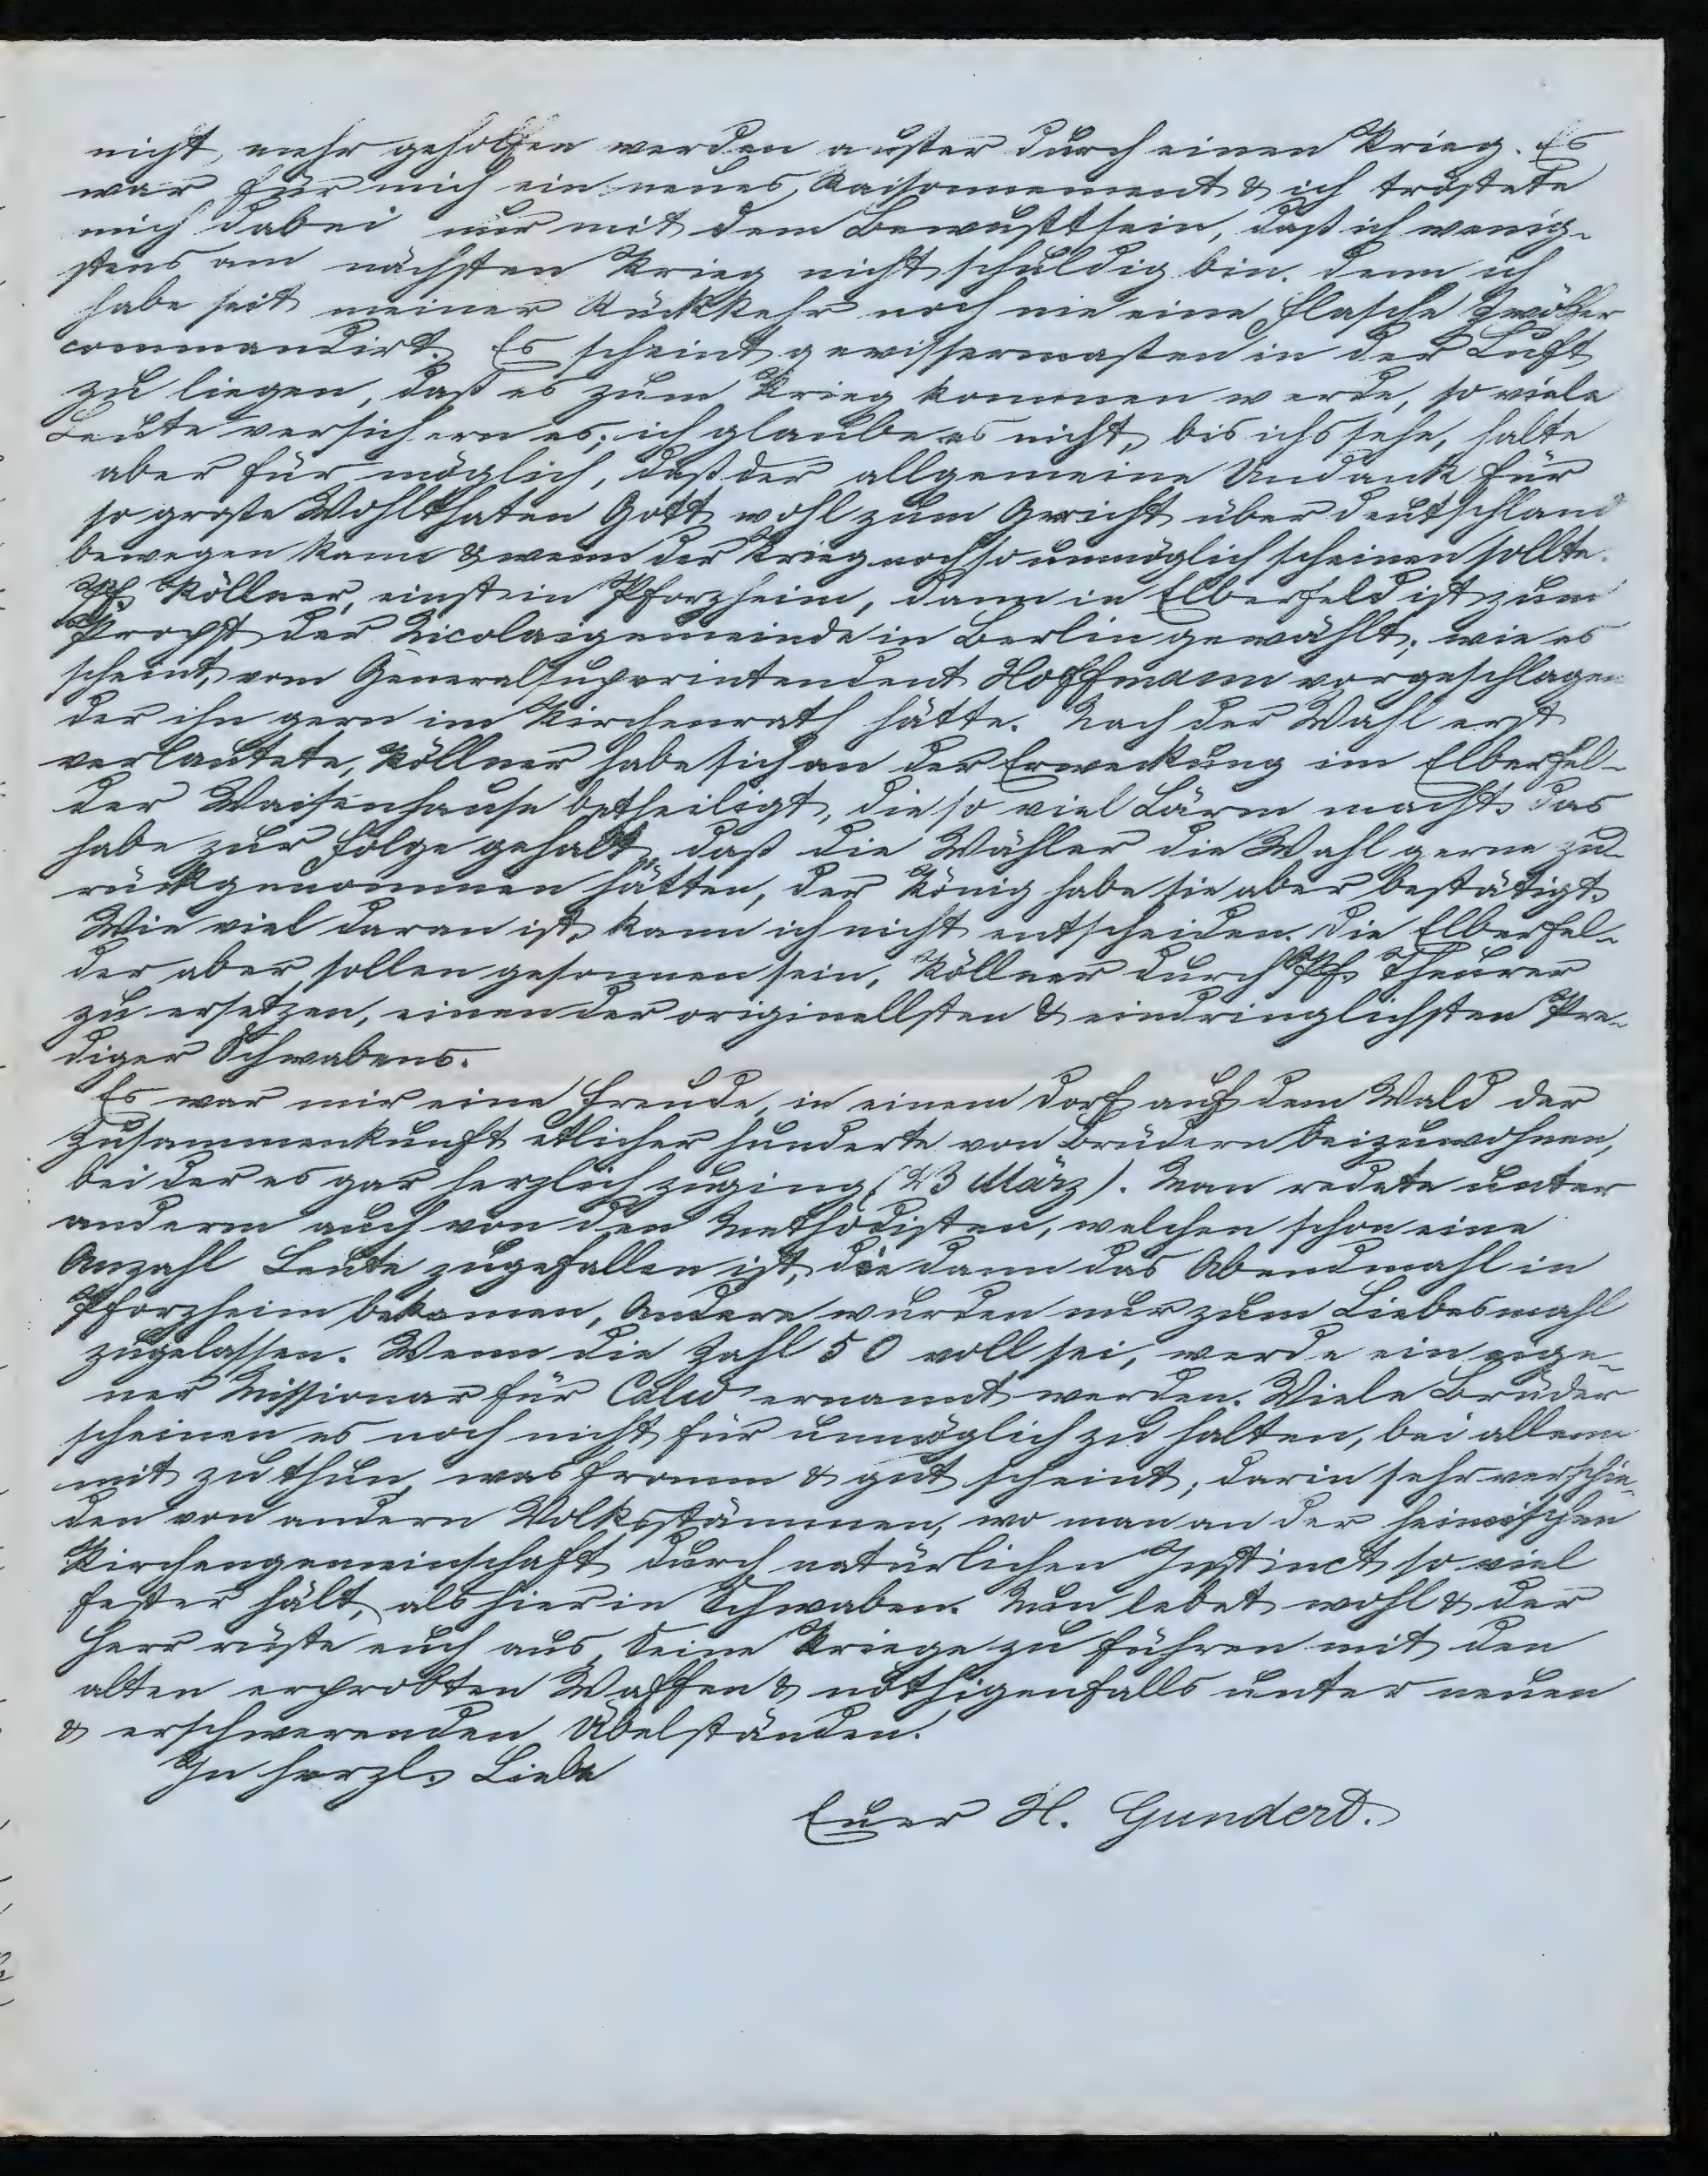 nicht mehr geholfen werden ausser durch einen Krieg. Es
war für mich ein neues Raisonnement & ich tröstete
mich dabei nur mit dem Bewusstsein, dass ich wenig-
stens am nächsten Krieg nicht schuldig bin. denn ich
habe seit meiner Rückkehr noch nie eine Flasche Zwölfer
commandirt. Es scheint gewissermassen in der Luft
zu liegen, dass es zum Krieg kommen werde, so viele
Leute versichern es; ich glaube es nicht, bis ichs sehe, halte
aber für möglich, dass der allgemeine Undank für
so grosse Wohlthaten Gott wohl zum Gericht über Deutschland
bewegen kann & wenn der Krieg noch so unmöglich scheinen sollte.
Pf. Köllner, einst in Pforzheim, dann in Elberfeld ist zum
Propst der Nicolaigemeinde in Berlin gewählt; wie es
scheint, vom Generalsuperintendent Hoffmann vorgeschlagen
der ihn gern im Kirchenrath hätte. Nach der Wahl erst
verlautete, Köllner habe sich an der Erweckung im Elberfel-
der Waisenhause betheiligt, die so viel Lärm macht. das
habe zur Folge gehabt, dass die Wähler die Wahl gerne zu-
rückgenommen hätten, der König habe sie aber bestätigt.
Wie viel daran ist, kann ich nicht entscheiden. Die Elberfel-
der aber sollen gesonnen sein, Köllner durch Pf. Theurer
zu ersetzen, einen der originellsten & eindringlichsten Pre-
diger Schwabens.
Es war mir eine Freude, in einem Dorf auf dem Wald der
Zusammenkunft etlicher hunderte von Brüdern beizuwohnen,
bei der es gar herzlich zuging (23 März). Man redete unter
anderm auch von den Methodisten, welchen schon eine
Anzahl Leute zugefallen ist, die dann das Abendmahl in
Pforzheim bekamen, Andere wurden nur zum Liebesmahl
zugelassen. Wenn die Zahl 50 voll sei, werde ein eige-
ner Missionar für Calw ernannt werden. Viele Brüder
scheinen es noch nicht für unmöglich zu halten, bei allem
mit zu thun, was fromm & gut scheint; darin sehr verschie-
den von andern Volksstämmen, wo man an der heimischen
Kirchengemeinschaft durch natürlichen Instinct so viel
fester hält, als hier in Schwaben. Nun lebet wohl & der
Herr rüste euch aus, Seine Kriege zu führen mit den
alten erprobten Waffen & nöthigenfalls unter neuen
& erschwerenden Übelständen.
In herzl. Liebe
Euer H. Gundert.